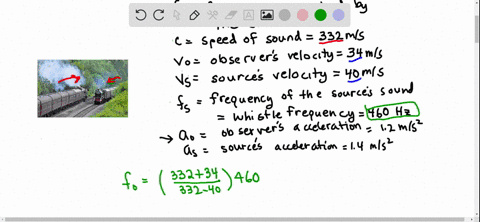 c = speed of sound = 332 m/s
Vo = observer's velocity = 34 m/s
Vs = source's velocity = 40 m/s
fs = frequency of the source's sound
= whistle frequency = 460 Hz
→ ao = observer's acceleration = 1.2 m/s²
as = source's acceleration = 1.4 m/s²
fo = (332+34 / 332-40) 460